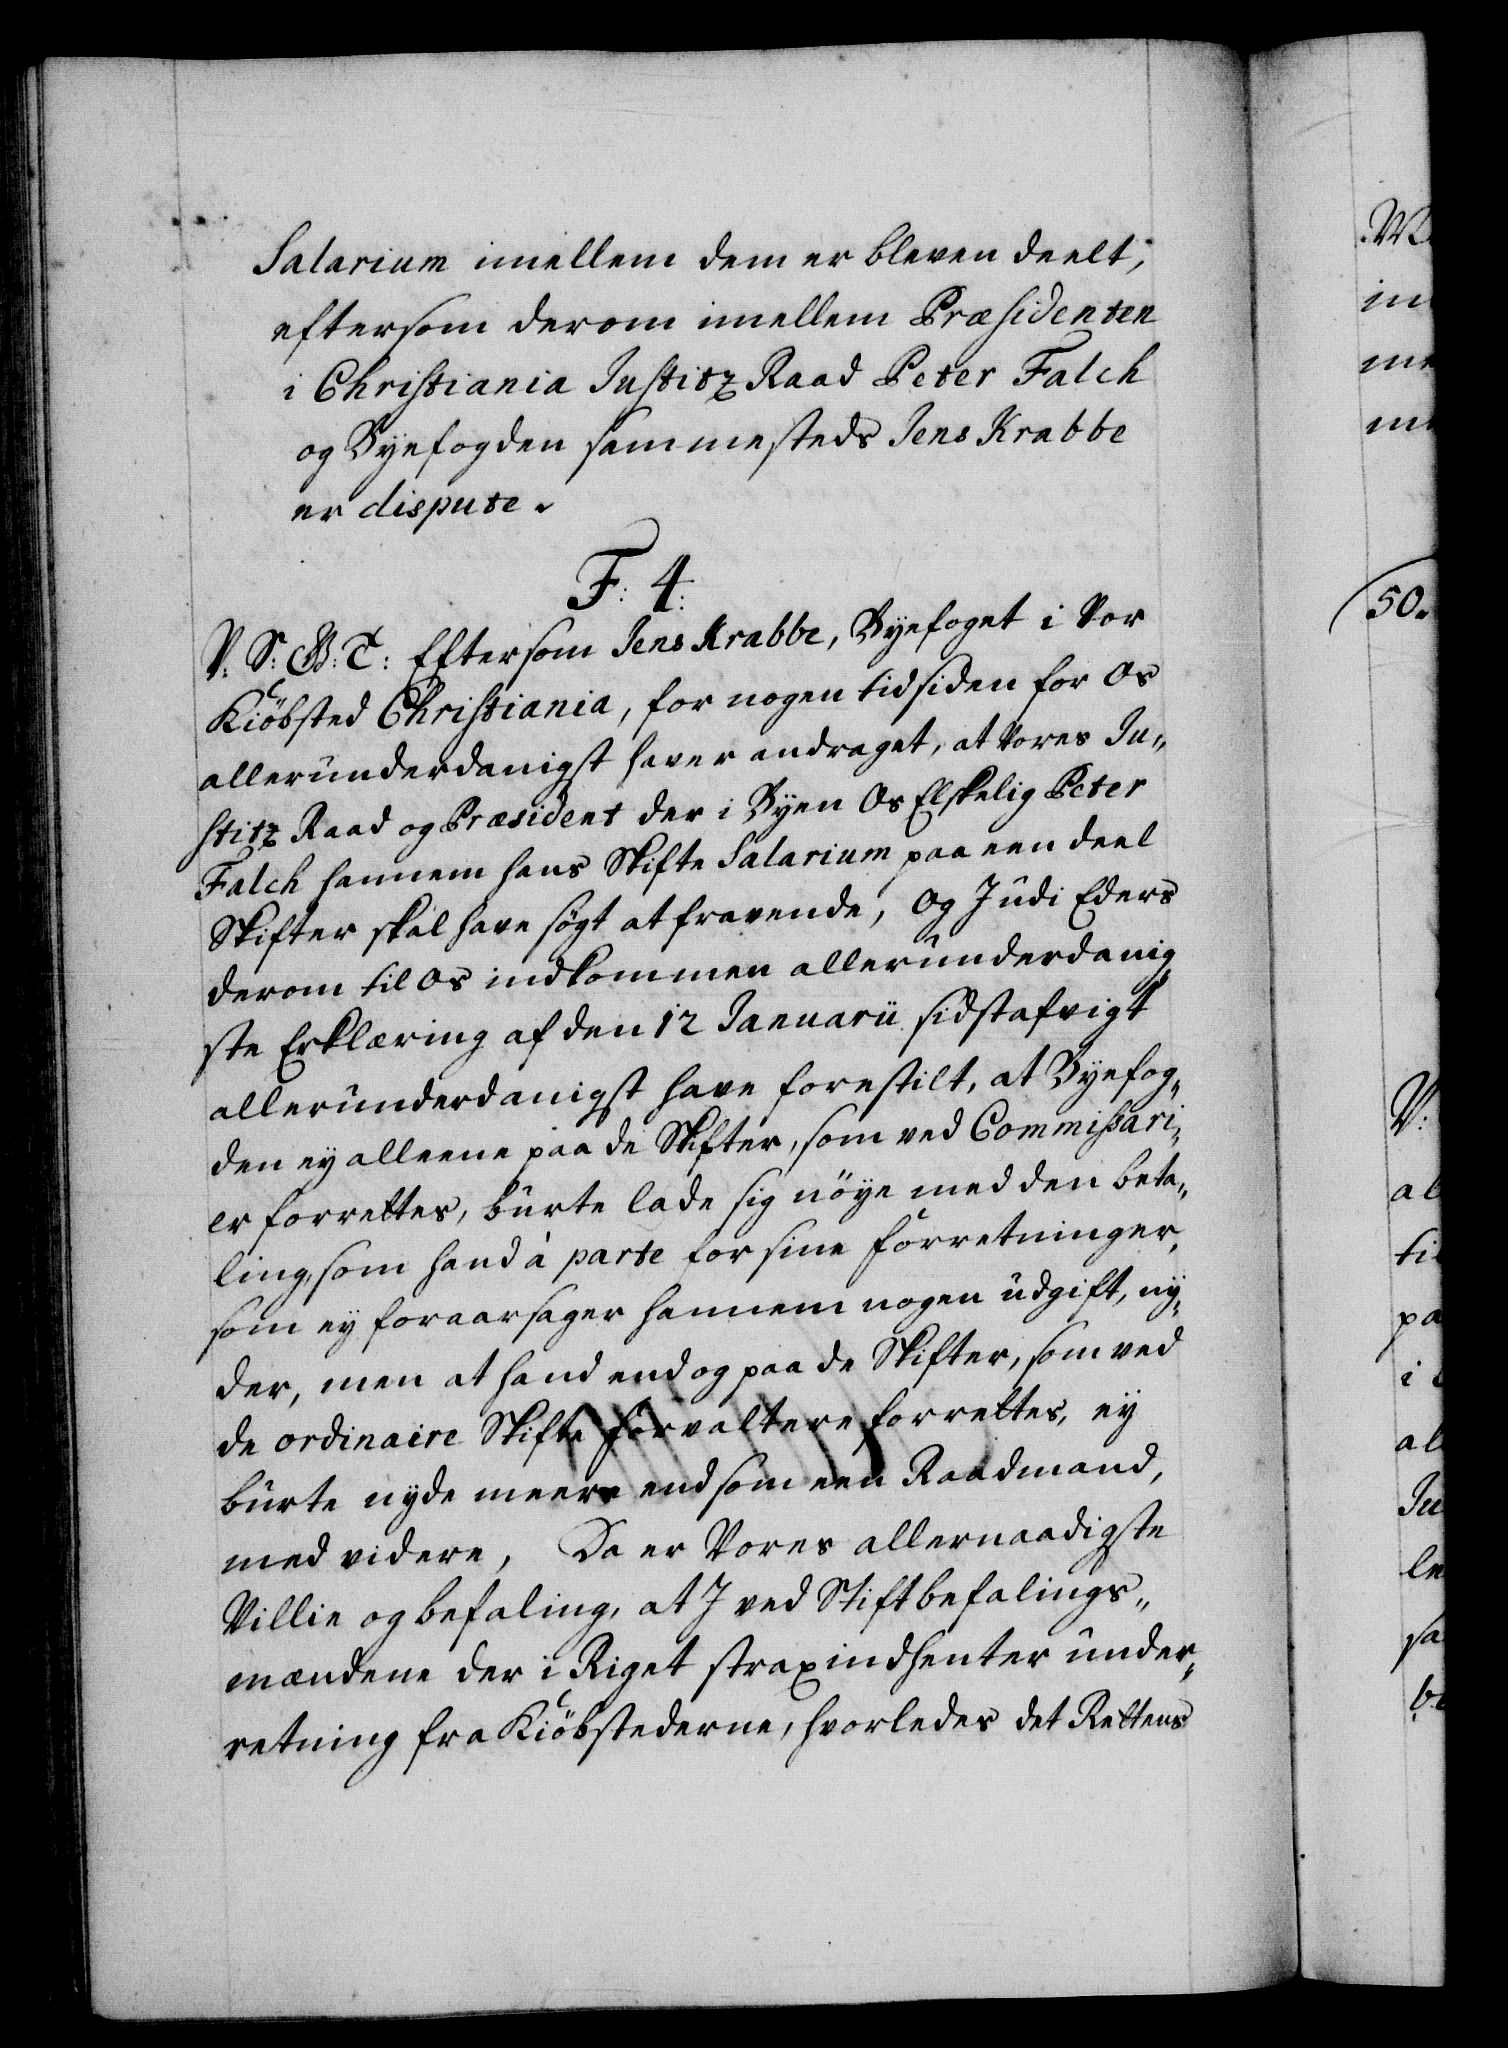 Salarium imellem dem er bleven deelt,
eftersom derom imellem Præsidenten
i Christiania Justitz Raad Peter Falch
og Byefogden sammesteds Jens Krabbe
er dispute.
F: 4:
V: S: G: T: Eftersom Jens Krabbe, Byefoget i Vor
Kiöbsted Christiania, for nogen tid siden for Os
allerunderdanigst haver andraget, at Vores Ju„
stitz Raad og Præsident der i Byen Os Elskelig Peter
Falch hannem hans Skifte Salarium paa een deel
Skifter skal have søgt at fravende, Og I udi Eders
derom til Os indkommen allerunderdanig„
ste Erklæring af den 12 Januarii sidstafvigt
allerunderdanigst have forestilt, at Byefog„
den ey alleene paa de Skifter, som ved Commissari„
er forrettes, burte lade sig nöye med den beta„
ling, som hand à parte for sine forretninger,
som ey foraarsager hannem nogen udgift, ny„
der, men at hand endog paa de Skifter, som ved
de ordinaire Skifte forvaltere forrettes, ey
burte nyde meere end som een Raadmand,
med videre, Da er Vores allernaadigste
Villie og befaling, at I ved Stiftbefalings„
mændene der i Riget strax indhenter under„
retning fra Kiöbstederne, hvorledes det Rettens
50.
V:
ab
til
pa
i
al
Ju
le
sa